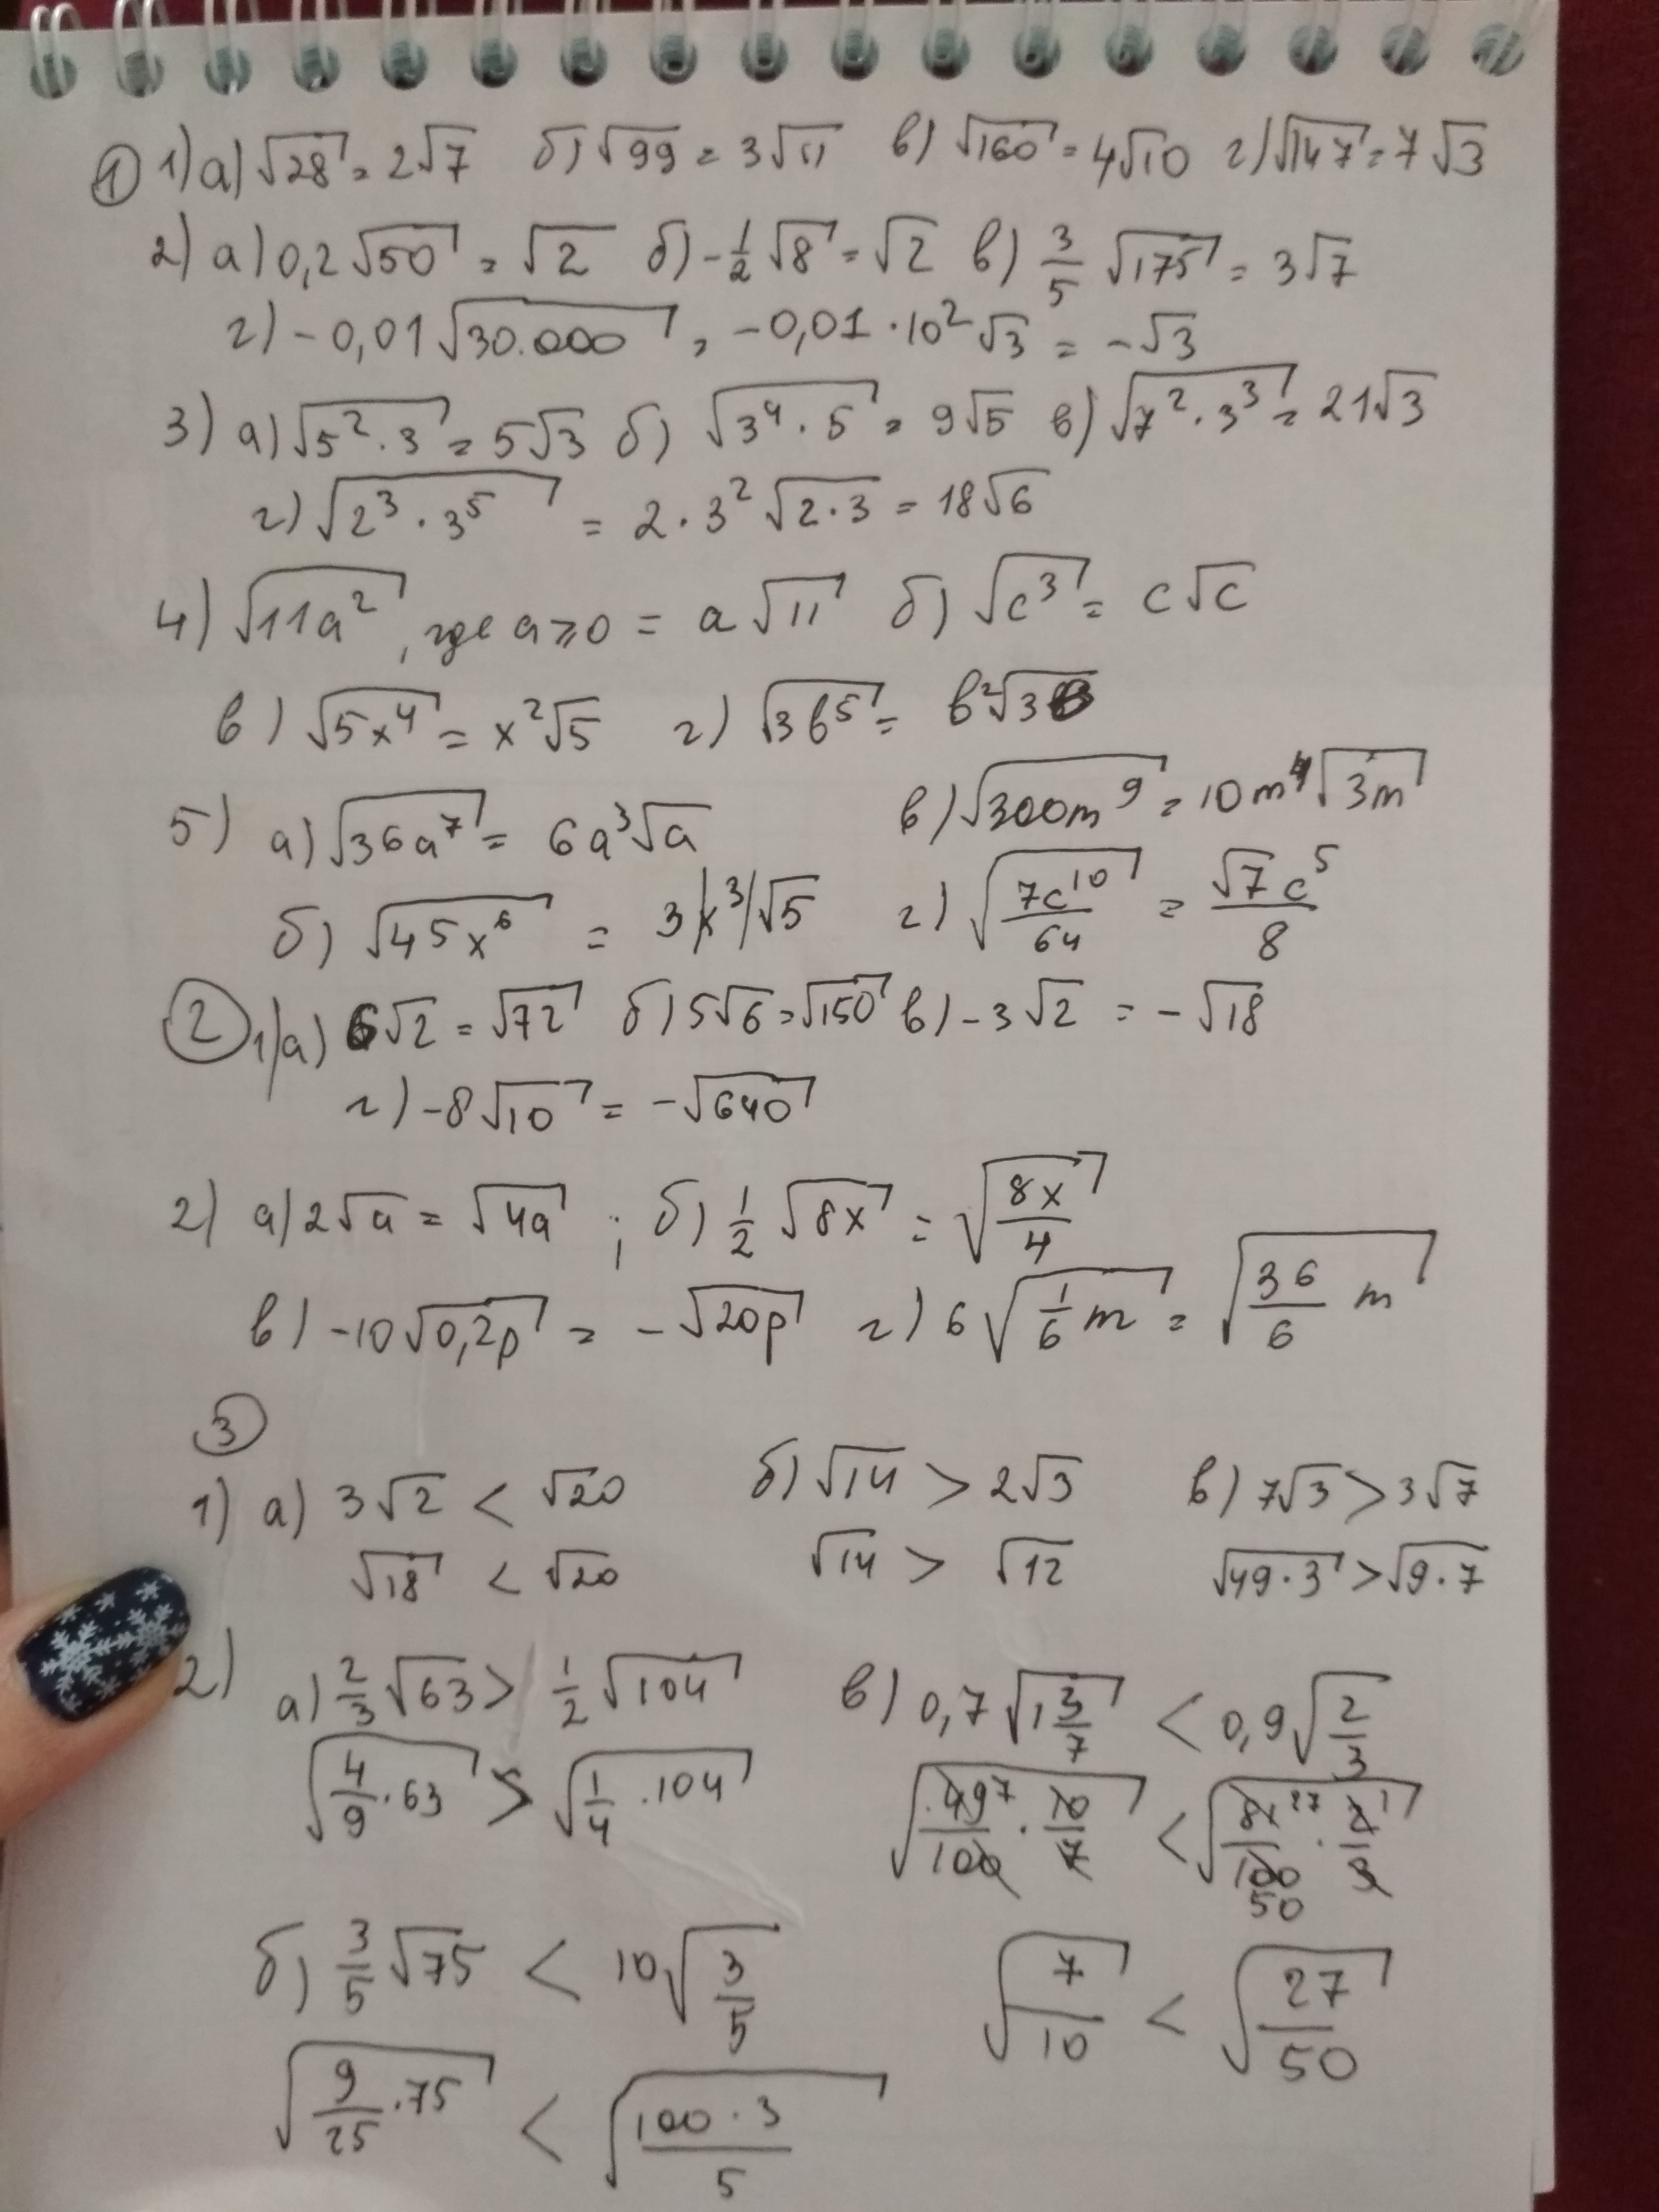 ① 1) а) √28 = 2√7 б) √99 = 3√11 в) √160 = 4√10 г) √147 = 7√3
2) а) 0,2√50 = √2 б) -1/2 √8 = √2 в) 3/5 √175 = 3√7
г) -0,01√30.000 = -0,01 · 10² √3 = -√3
3) а) √(5² · 3) = 5√3 б) √(3⁴ · 5) = 9√5 в) √(7² · 3³) = 21√3
г) √(2³ · 3⁵) = 2 · 3² √(2 · 3) = 18√6
4) √(11a²), где a ⩾ 0 = a√11 б) √(c³) = c√c
в) √(5x⁴) = x²√5 г) √(3b⁵) = b²√(3b)
5) а) √(36a⁷) = 6a³√a в) √(300m⁹) = 10m⁴√(3m)
б) √(45x⁶) = 3|x³|√5 г) √(7c¹⁰/64) = √7 c⁵/8
② 1) а) 6√2 = √72 б) 5√6 = √150 в) -3√2 = -√18
г) -8√10 = -√640
2) а) 2√a = √(4a) ; б) 1/2 √(8x) = √(8x/4)
в) -10√(0,2p) = -√(20p) г) 6√(1/6 m) = √(36/6 m)
③
1) а) 3√2 < √20 б) √14 > 2√3 в) 7√3 > 3√7
√18 < √20 √14 > √12 √(49 · 3) > √(9 · 7)
2) а) 2/3 √63 > 1/2 √104 в) 0,7√(1 3/7) < 0,9√(2/3)
√(4/9 · 63) > √(1/4 · 104) √(49/100 · 10/7) < √(81/100 · 2/3)
7 27 1 50
б) 3/5 √75 < 10√(3/5) √(7/10) < √(27/50)
√(9/25 · 75) < √(100 · 3/5)